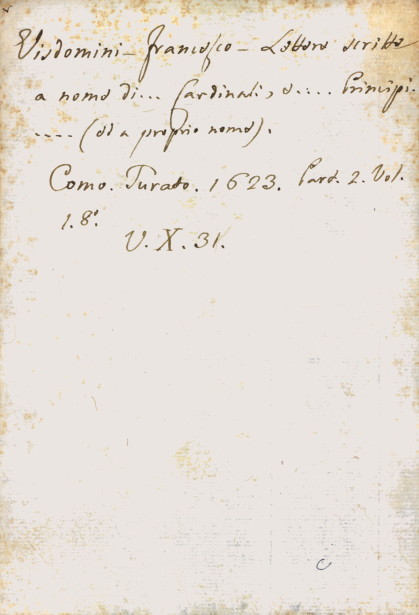 Visdomini - Francesco - Lettere scritte
a nome di... Cardinali, e.... Principi.
.... (ed a proprio nome).
Como. Turato. 1623. Part. 2. Vol.
1. 8°.
V. X. 31.